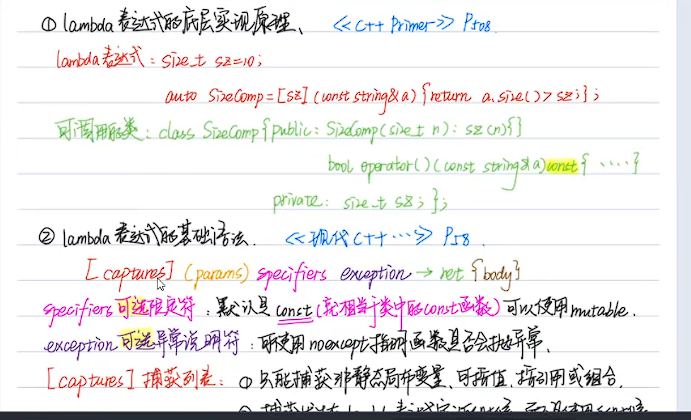 ① lambda表达式的底层实现原理、 《C++ Primer》 P508.
lambda表达式: size_t sz=10;
auto SizeComp=[sz](const string&a){return a.size()>sz;};
可调用的类: class SizeComp{public: SizeComp(size_t n): sz(n){}
bool operator()(const string&a)const{ ....}
private: size_t sz; };
② lambda表达式的基础语法. 《现代C++…》 P58.
[captures] (params) specifiers exception → ret {body}
specifiers 可选限定符: 默认是const(就相当于类中的const函数)可以使用mutable.
exception可选异常说明符: 可使用noexcept指明函数是否会抛异常.
[captures]捕获列表: ① 只能捕获非静态局部变量、可按值、按引用或组合.